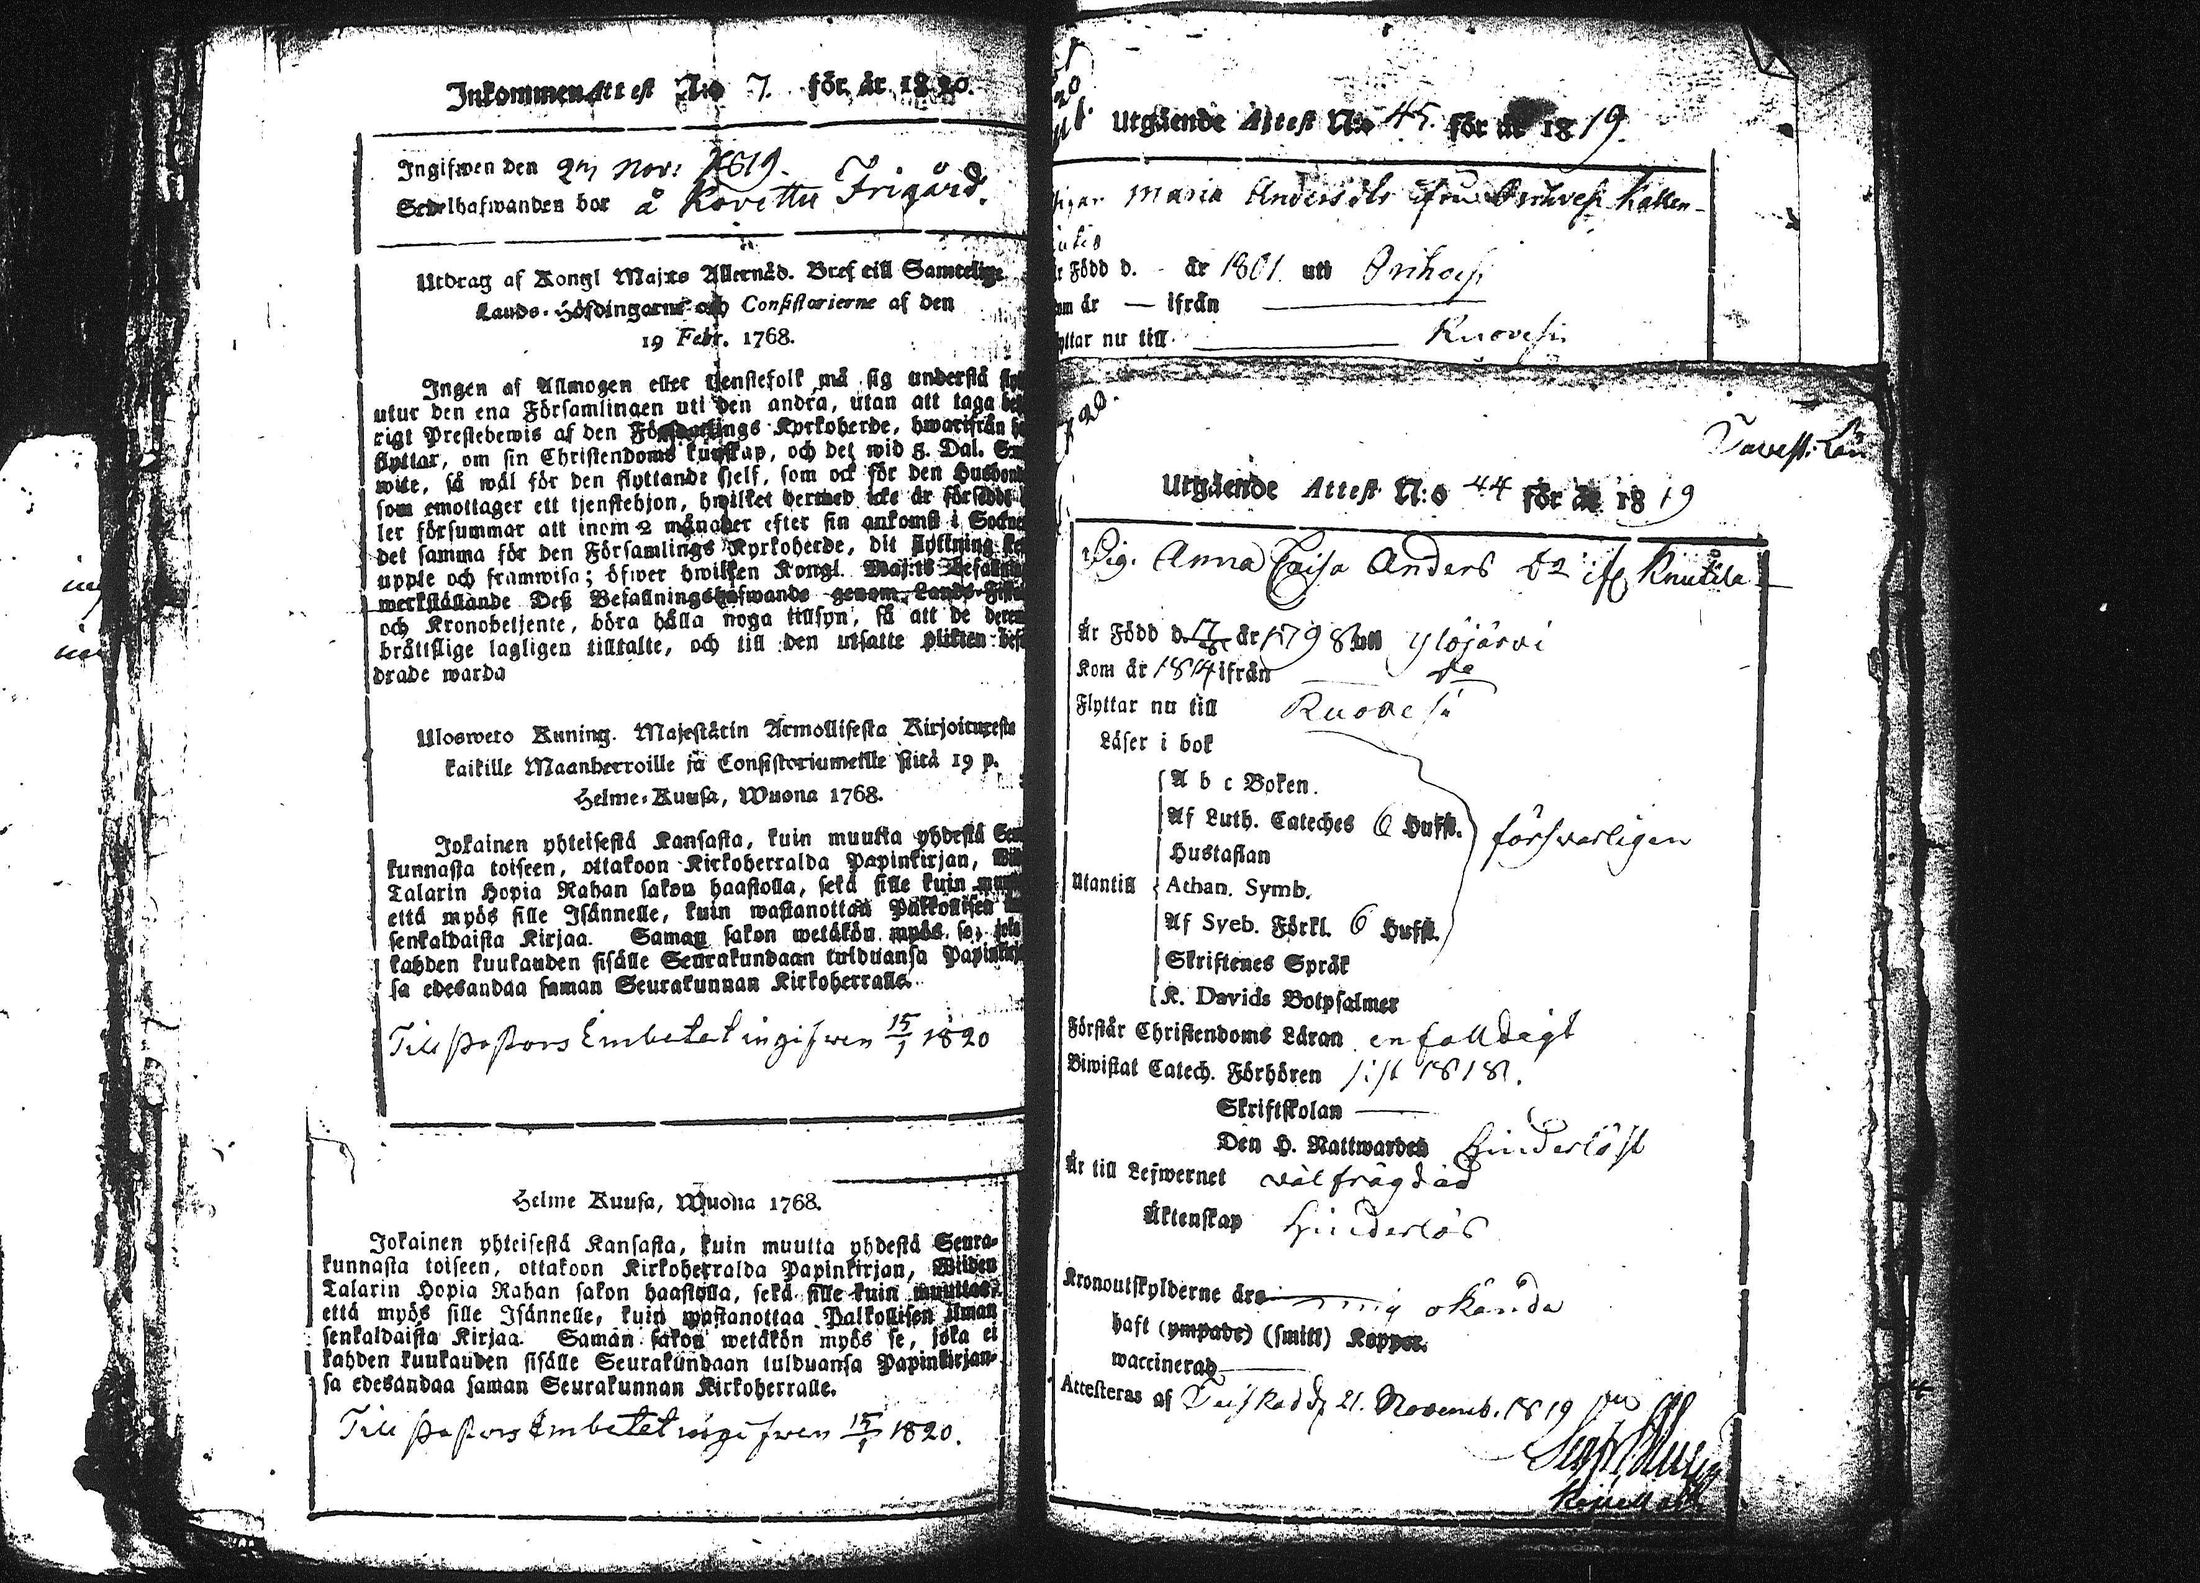 Inkommen Attest N:o 7. för år 1820.
Ingifwen den 27 Nov: 1819.
Sedelhafwanden bor å Rovettu Frigård.
Utdrag af Kongl Maj:ts Allernåd. Bref till Samtelige
Lands-Höfdingarne och Consistorierne af den
19 Febr. 1768.
Ingen af Allmogen eller tjenstefolk må sig understå
utur den ena Församlingen uti den andra, utan att taga
rigt Prestebewis af den Församlings Kyrkoherde, hwarifrån
flyttar, om sin Christendoms kunskap, och det wid 5. Dal.
wite, så wäl för den flyttande sjelf, som ock för den
som emottager ett tjenstehjon, hwilket dermed icke är försedt
ler försummar att inom 2 månader efter sin ankomst i
det samma för den Församlings Kyrkoherde, dit flyttning
upple och framwisa; öfwer hwilken Kongl. Maj:ts
werkställande Deß Befallningshafwande genom Lands-
och Kronobetjente, böra hålla noga tillsyn, så att de
bråttslige lagligen tilltalte, och till den utsatte plikten
drade warda
Ulosweto Kuning. Majestätin Armollisesta Kirjoituxesta
kaikille Maanherroille ja Consistoriumeille siitä 19 p.
Helme-Kuusa, Wuona 1768.
Jokainen yhteisestä Kansasta, kuin muutta yhdestä
kunnasta toiseen, ottakoon Kirkoherralda Papinkirjan,
Talarin Hopia Rahan sakon haastolla, sekä sille kuin
että myös sille Isännelle, kuin wastanottaa Palkollisen
senkaldaista Kirjaa. Saman sakon wetäkön myös se, joka
kahden kuukauden sisälle Seurakundaan tulduansa
sa edesandaa saman Seurakunnan Kirkoherralle.
Till Pastors Embetet ingifwen 15/1 1820
Helme Kuusa, Wuona 1768.
Jokainen yhteisestä Kansasta, kuin muutta yhdestä Seura-
kunnasta toiseen, ottakoon Kirkoherralda Papinkirjan, Wiiden
Talarin Hopia Rahan sakon haastolla, sekä sille kuin muuttaa,
että myös sille Isännelle, kuin wastanottaa Palkollisen ilman
senkaldaista Kirjaa. Saman sakon wetäkön myös se, joka ei
kahden kuukauden sisälle Seurakundaan tulduansa Papinkirjan-
sa edesandaa saman Seurakunnan Kirkoherralle.
Till Pastors Embetet ingifwen 15/1 1820.
Utgående Attest N:o 45. för år 1819.
Maria Anders dr ifrån Orihvesi
Född d. - år 1801. uti Orihvesi
år — ifrån
nu till Ruovesi
Tavast. Län
Utgående Attest N:o 44 för år 1819
Pig. Anna Caisa Anders dr ifr Knutila
Är Född d. år 1798 uti Ylöjärvi
Kom år 1814 ifrån do
Flyttar nu till Ruovesi
Läser i bok
A b c Boken.
Af Luth. Cateches 6 Hufst.
försvarligen
Hustaflan
Utantill
Athan. Symb.
Af Sveb. Förkl. 6 Hufst.
Skriftenes Språk
K. Davids Botpsalmer
Förstår Christendoms Läran enfalldigt
Biwistat Catech. Förhören sist 1818.
Skriftskolan —
Den H. Nattwarden hinderlöst
Är till Lefwernet välfrägdad
Äktenskap hinderlös
Kronoutskylderne äro mig okända
haft (ympade) (smitt) Koppor.
waccinerad
Attesteras af Teiskad d. 21. Novemb. 1819